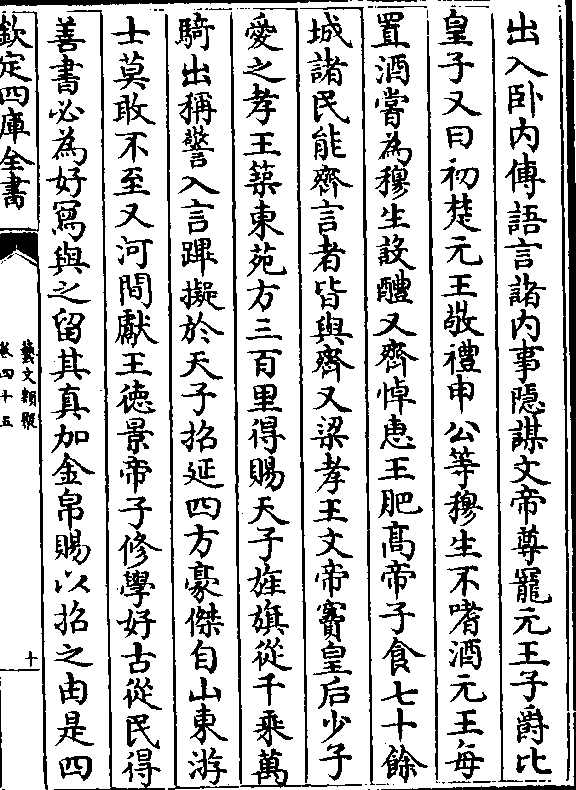 出入卧内傳語言諸内事隠謀文帝尊寵元王子爵比
皇子又曰初楚元王敬禮申公等穆生不嗜酒元王每
置酒嘗為穆生設醴又齊悼惠王肥髙帝子食七十餘
城諸民能齊言者皆與齊又梁孝王文帝竇皇后少子
愛之孝王築東苑方三百里得賜天子旌旗從千乘萬
騎出稱警入言蹕擬於天子招延四方豪傑自山東游
士莫敢不至又河間獻王徳景帝子修學好古從民得
善書必為好寫與之留其真加金帛賜以招之由是四
欽定四庫全書
藝文類聚
卷四十五
十